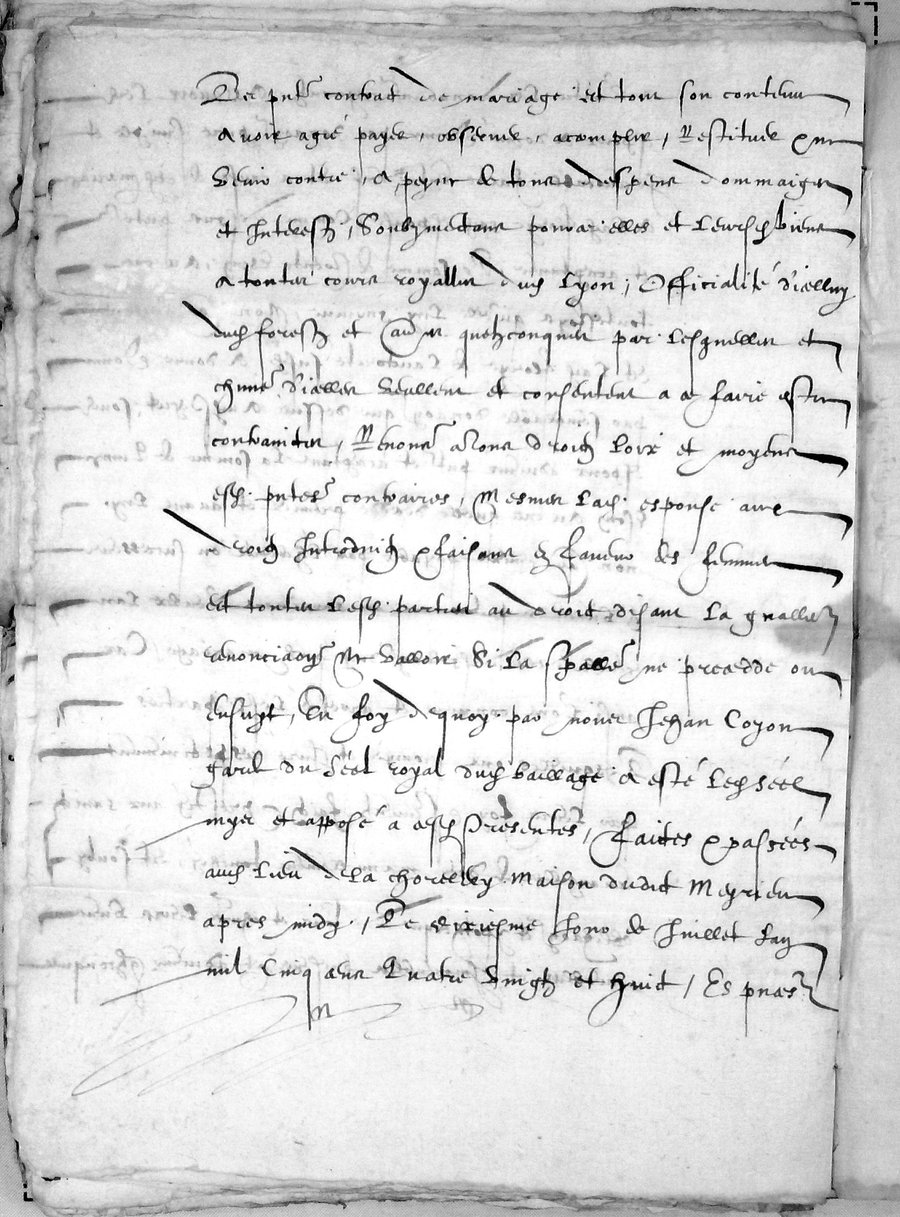 Le pnt contract de mariage et tout son contenu
avoir agre payer, observer, acomplir, restituer & ne
venir contre, a peyne de tous despens dommaiges
et interestz, Soubzmectans pour elles et leursd biens
a toutes cours royalles dud Lyon, Officialité d'icelluy
dud forestz et aues quelzconques par lesquelles et
chune d'icelles veullent et consentent a ce faire estre
contrainctes, Renonct a tous droictz loix et moyens
esd pntes contraires, Mesmes lad espouse aux
droictz introduictz & faisans en faveur des femmes
et toutes lesd parties au droict disant la gnalle
renonciaon ne valloir Si la spalle ne precedde ou
ensuyt, En foy de quoy par nous Jehan Coyon
garde du séel royal dud bailliage a esté led séel
mys et apposé a cesd presentes, Faictes & passées
aud lieu de la maison dudit Meyrieu
apres midy, Le dixiesme Jour de Juillet lan
mil Cinq cens Quatre vingtz et huict, Es pnces